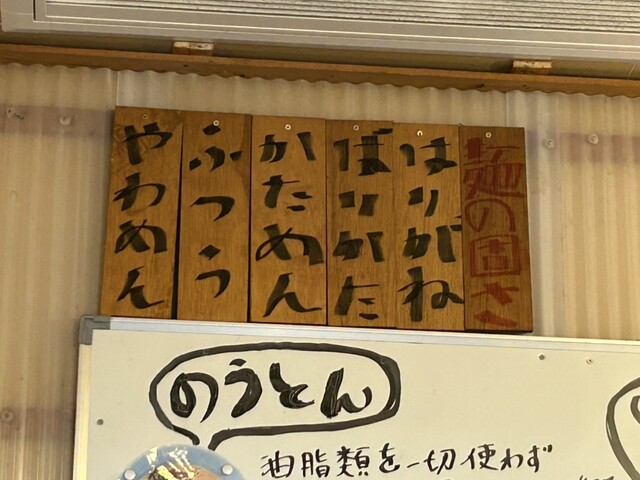 麺の固さ
はりがね
ばりかた
かためん
ふつう
やわめん
のうとん
油脂類を一切使わず